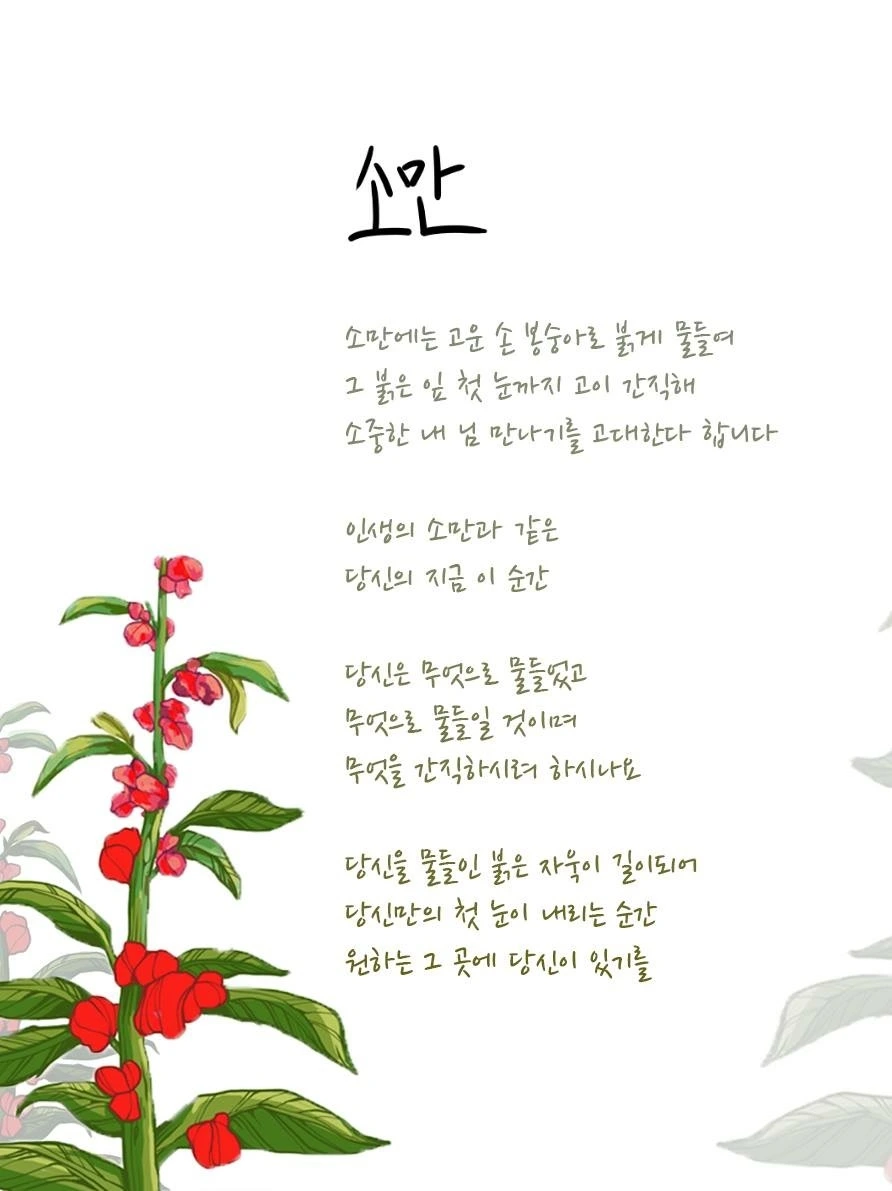 소만
소만에는 고운 손 봉숭아로 붉게 물들여
그 붉은 잎 첫 눈까지 고이 간직해
소중한 내 님 만나기를 고대한다 합니다
인생의 소만과 같은
당신의 지금 이 순간
당신은 무엇으로 물들었고
무엇으로 물들일 것이며
무엇을 간직하시려 하시나요
당신을 물들인 붉은 자욱이 길이되어
당신만의 첫 눈이 내리는 순간
원하는 그 곳에 당신이 있기를